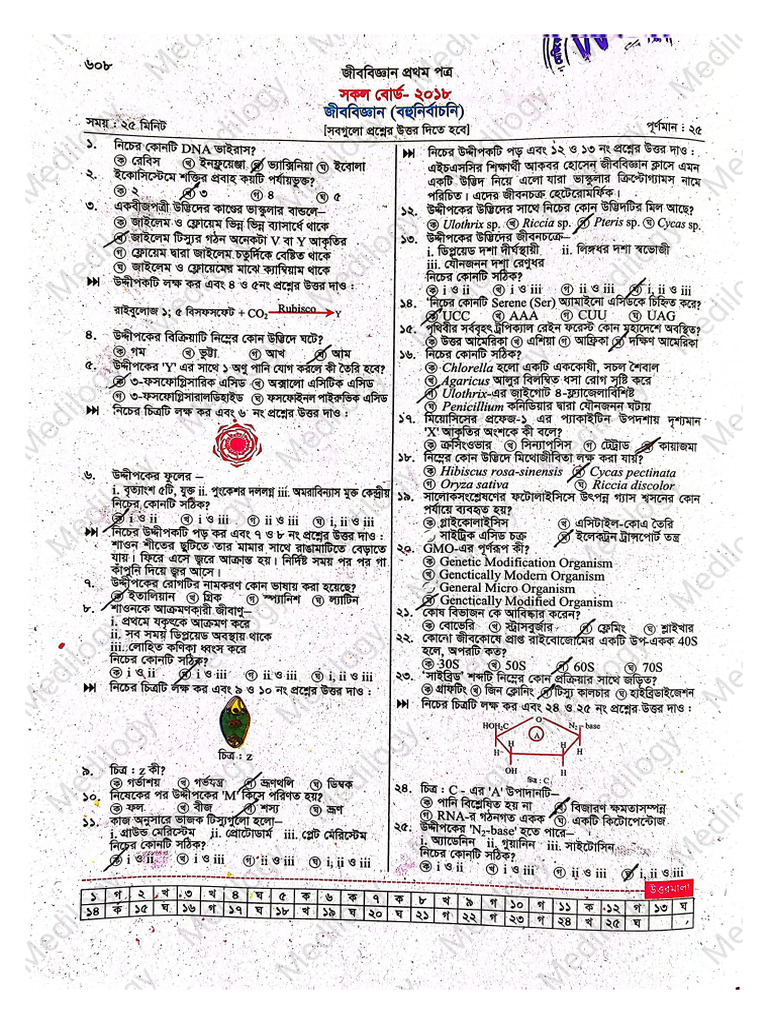 ৬০৮
জীববিজ্ঞান প্রথম পত্র
সকল বোর্ড- ২০১৮
জীববিজ্ঞান (বহুনির্বাচনি)
সময় : ২৫ মিনিট
[সবগুলো প্রশ্নের উত্তর দিতে হবে]
পূর্ণমান : ২৫
১. নিচের কোনটি DNA ভাইরাস?
ক রেবিস খ ইনফ্লুয়েঞ্জা গ ভ্যাক্সিনিয়া ঘ ইবোলা
২. ইকোসিস্টেমে শক্তির প্রবাহ কয়টি পর্যায়ভুক্ত?
ক ২ খ ৩ গ ৪ ঘ ৫
৩. একবীজপত্রী উদ্ভিদের কাণ্ডের ভাস্কুলার বান্ডলে–
ক জাইলেম ও ফ্লোয়েম ভিন্ন ভিন্ন ব্যাসার্ধে থাকে
খ জাইলেম টিস্যুর গঠন অনেকটা V বা Y আকৃতির
গ ফ্লোয়েম দ্বারা জাইলেম চতুর্দিকে বেষ্টিত থাকে
ঘ জাইলেম ও ফ্লোয়েমের মাঝে ক্যাম্বিয়াম থাকে
উদ্দীপকটি লক্ষ কর এবং ৪ ও ৫নং প্রশ্নের উত্তর দাও :
রাইবুলোজ ১; ৫ বিসফসফেট + CO₂ Rubisco Y
৪. উদ্দীপকের বিক্রিয়াটি নিম্নের কোন উদ্ভিদে ঘটে?
ক গম খ ভুট্টা গ আখ ঘ আম
৫. উদ্দীপকের 'Y' এর সাথে ১ অণু পানি যোগ করলে কী তৈরি হবে?
ক ৩-ফসফোগ্লিসারিক এসিড খ অক্সালো এসিটিক এসিড
গ ৩-ফসফোগ্লিসারালডিহাইড ঘ ফসফোইনল পাইরুভিক এসিড
নিচের চিত্রটি লক্ষ কর এবং ৬ নং প্রশ্নের উত্তর দাও :
৬. উদ্দীপকের ফুলের –
i. বৃত্যাংশ ৫টি, যুক্ত ii. পুংকেশর দললগ্ন iii. অমরাবিন্যাস মুক্ত কেন্দ্রীয়
নিচের কোনটি সঠিক?
ক i ও ii খ i ও iii গ ii ও iii ঘ i, ii ও iii
নিচের উদ্দীপকটি পড় এবং ৭ ও ৮ নং প্রশ্নের উত্তর দাও :
শাওন শীতের ছুটিতে তার মামার সাথে রাঙামাটিতে বেড়াতে
যায়। ফিরে এসে জ্বরে আক্রান্ত হয়। নির্দিষ্ট সময় পর পর গা
কাঁপুনি দিয়ে জ্বর আসে।
৭. উদ্দীপকের রোগটির নামকরণ কোন ভাষায় করা হয়েছে?
ক ইতালিয়ান খ গ্রিক গ স্প্যানিশ ঘ ল্যাটিন
৮. শাওনকে আক্রমণকারী জীবাণু–
i. প্রথমে যকৃৎকে আক্রমণ করে
ii. সব সময় ডিপ্লয়েড অবস্থায় থাকে
iii. লোহিত কণিকা ধ্বংস করে
নিচের কোনটি সঠিক?
ক i ও ii খ i ও iii গ ii ও iii ঘ i, ii ও iii
নিচের চিত্রটি লক্ষ কর এবং ৯ ও ১০ নং প্রশ্নের উত্তর দাও :
চিত্র : z
৯. চিত্র : z কী?
ক গর্ভাশয় খ গর্ভযন্ত্র গ ভ্রূণথলি ঘ ডিম্বক
১০. নিষেকের পর উদ্দীপকের 'M' কিসে পরিণত হয়?
ক ফল খ বীজ গ শস্য ঘ ভ্রূণ
১১. কাজ অনুসারে ভাজক টিস্যুগুলো হলো–
i. গ্রাউন্ড মেরিস্টেম ii. প্রোটোডার্ম iii. প্লেট মেরিস্টেম
নিচের কোনটি সঠিক?
ক i ও ii খ i ও iii গ ii ও iii ঘ i, ii ও iii
নিচের উদ্দীপকটি পড় এবং ১২ ও ১৩ নং প্রশ্নের উত্তর দাও :
এইচএসসির শিক্ষার্থী আকবর হোসেন জীববিজ্ঞান ক্লাসে এমন
একটি উদ্ভিদ নিয়ে এলো যারা ভাস্কুলার ক্রিপ্টোগ্যামস নামে
পরিচিত। এদের জীবনচক্র হেটেরোমর্ফিক।
১২. উদ্দীপকের উদ্ভিদের সাথে নিচের কোন উদ্ভিদটির মিল আছে?
ক Ulothrix sp. খ Riccia sp. গ Pteris sp. ঘ Cycas sp.
১৩. উদ্দীপকের উদ্ভিদের জীবনচক্রে–
i. ডিপ্লয়েড দশা দীর্ঘস্থায়ী ii. লিঙ্গধর দশা স্বভোজী
iii. যৌনজনন দশা রেণুধর
নিচের কোনটি সঠিক?
ক i ও ii খ i ও iii গ ii ও iii ঘ i, ii ও iii
১৪. নিচের কোনটি Serene (Ser) অ্যামাইনো এসিডকে চিহ্নিত করে?
ক UCC খ AAA গ CUU ঘ UAG
১৫. পৃথিবীর সর্ববৃহৎ ট্রপিক্যাল রেইন ফরেস্ট কোন মহাদেশে অবস্থিত?
ক উত্তর আমেরিকা খ এশিয়া গ আফ্রিকা ঘ দক্ষিণ আমেরিকা
১৬. নিচের কোনটি সঠিক?
ক Chlorella হলো একটি এককোষী, সচল শৈবাল
খ Agaricus আলুর বিলম্বিত ধসা রোগ সৃষ্টি করে
গ Ulothrix-এর জাইগোট ৪-ফ্ল্যাজেলাবিশিষ্ট
ঘ Penicillium কনিডিয়ার দ্বারা যৌনজনন ঘটায়
১৭. মিয়োসিসের প্রফেজ-১ এর প্যাকাইটিন উপদশায় দৃশ্যমান
'X' আকৃতির অংশকে কী বলে?
ক ক্রসিংওভার খ সিন্যাপসিস গ টেট্রাড ঘ কায়াজমা
১৮. নিম্নের কোন উদ্ভিদে মিথোজীবিতা লক্ষ করা যায়?
ক Hibiscus rosa-sinensis খ Cycas pectinata
গ Oryza sativa ঘ Riccia discolor
১৯. সালোকসংশ্লেষণের ফটোলাইসিসে উৎপন্ন গ্যাস শ্বসনের কোন
পর্যায়ে ব্যবহৃত হয়?
ক গ্লাইকোলাইসিস খ এসিটাইল-কোএ তৈরি
সাইট্রিক এসিড চক্র ঘ ইলেকট্রন ট্রান্সপোর্ট তন্ত্র
২০. GMO-এর পূর্ণরূপ কী?
ক Genetic Modification Organism
খ Genctically Modern Organism
General Micro Organism
ঘ Genctically Modified Organism
২১. কোষ বিভাজন কে আবিষ্কার করেন?
ক বোভেরি খ স্ট্রাসবুর্জার গ ফ্লেমিং ঘ শ্লাইখার
২২. কোনো জীবকোষে প্রাপ্ত রাইবোজোমের একটি উপ-একক 40S
হলে, অপরটি কত?
ক 30S খ 50S গ 60S ঘ 70S
২৩. 'সাইব্রিড' শব্দটি নিম্নের কোন প্রক্রিয়ার সাথে জড়িত?
ক গ্রাফটিং খ জিন ক্লোনিং গ টিস্যু কালচার ঘ হাইব্রিডাইজেশন
নিচের চিত্রটি লক্ষ কর এবং ২৪ ও ২৫ নং প্রশ্নের উত্তর দাও :
HOH₂C O N₂ – base
A
H H H H
OH H
চিত্র : C
২৪. চিত্র : C - এর 'A' উপাদানটি–
ক পানি বিশ্লেষিত হয় না খ বিজারণ ক্ষমতাসম্পন্ন
গ RNA-র গঠনগত একক ঘ একটি কিটোপেন্টোজ
২৫. উদ্দীপকের 'N₂-base' হতে পারে–
i. অ্যাডেনিন ii. গুয়ানিন iii. সাইটোসিন
নিচের কোনটি সঠিক?
ক i ও ii খ i ও iii গ ii ও iii ঘ i, ii ও iii
উত্তরমালা
১ গ ২ খ ৩ খ ৪ ঘ ৫ ক ৬ ক ৭ ক ৮ খ ৯ গ ১০ গ ১১ ক ১২ গ ১৩ ঘ
১৪ ক ১৫ ঘ ১৬ গ ১৭ ঘ ১৮ খ ১৯ ঘ ২০ ঘ ২১ গ ২২ গ ২৩ গ ২৪ খ ২৫ ঘ
Medilogy